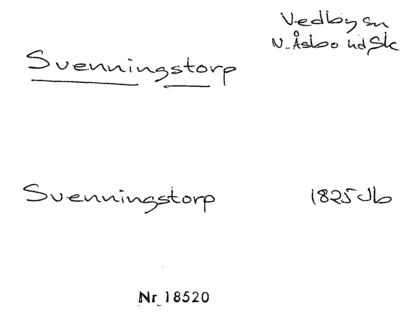 Vedby sn
N. Åsbo hd Sk
Svenningstorp
Svenningstorp 1825 Jb
Nr 18520